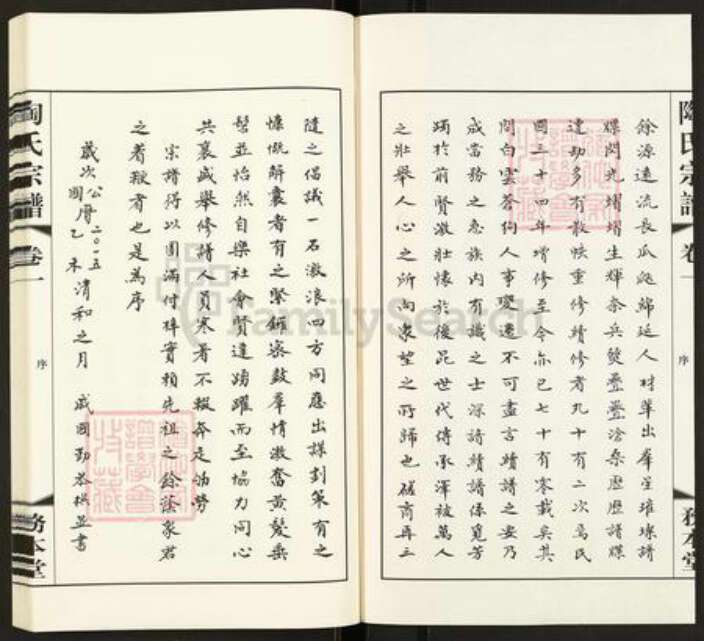 陶氏宗譜
卷一
序
務本堂
餘源遠流長瓜瓞綿延人材輩出羣星璀璨譜
牒閃光熠熠生輝奈兵燹疊疊滄桑歷歷譜牒
遭劫多有散帙重修續修者凡十有二次焉民
國三十四年增修至今亦已七十有零載矣其
間白雲蒼狗人事變遷不可盡言續譜之要乃
成當務之急族內有識之士深諳續譜係覓芳
躅於前賢激壯懷於後昆世代傳承渾被萬人
之壯舉人心之所向衆望之所歸也磋商再三
隨之倡議一石激浪四方同應出謀劃策有之
慷慨解囊者有之緊鑼密鼓羣情激奮黄髮垂
髫並怡然自樂社會賢達踴躍而至協力同心
共襄盛舉修譜人員寒暑不輟奔走劬勞
宗譜得以圓滿付梓實賴先祖之餘蔭衆君
之著鞭者也是爲序
歲次公曆二〇一五國曆乙未清和之月 盛國勤恭撰並書
陶氏宗譜
卷一
序
務本堂
FamilySearch